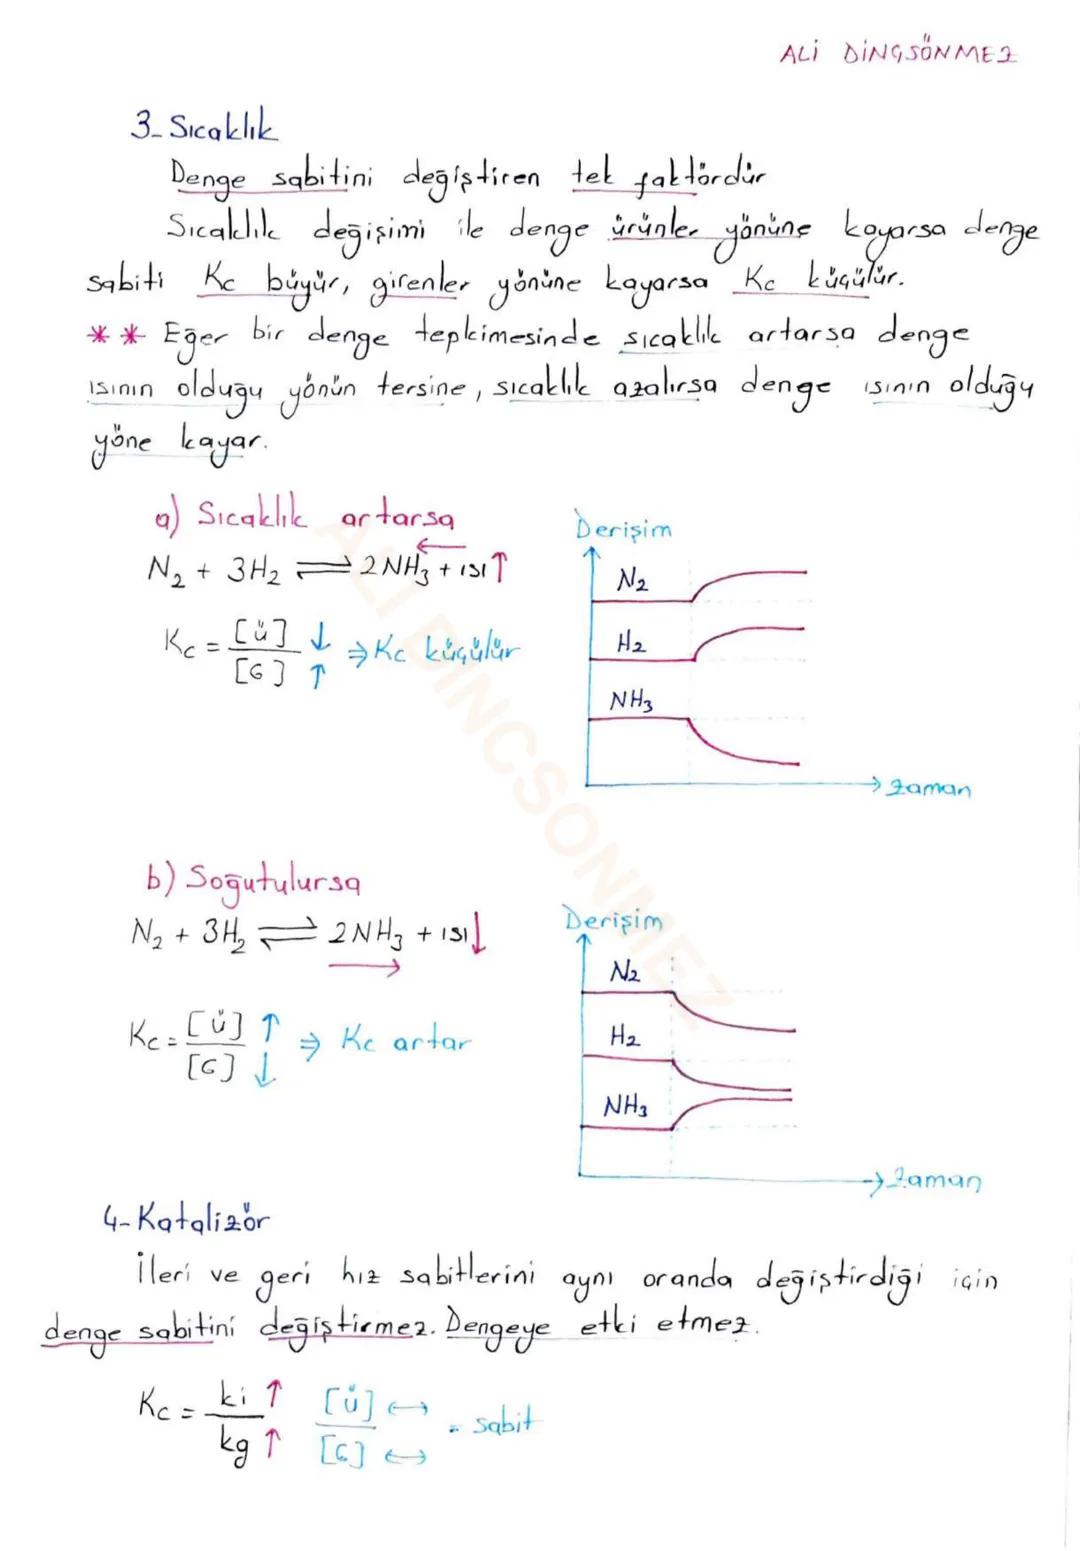 ALİ DİNÇSÖNMEZ
3- Sıcaklık
Denge sabitini değiştiren tek faktördür
Sıcaklık değişimi ile denge ürünler yönüne kayarsa denge
sabiti Kc büyür, girenler yönüne kayarsa Kc küçülür.
** Eğer bir denge tepkimesinde sıcaklık artarsa denge
ısının olduğu yönün tersine, sıcaklık azalırsa denge ısının olduğu
yöne kayar.
a) Sıcaklık artarsa
N₂ + 3H₂ ⇌ 2NH₃ + ısı↑
Kc = [Ü]↓ / [G]↑ ⇒ Kc küçülür
Derişim
N₂
H₂
NH₃
Zaman
b) Soğutulursa
N₂ + 3H₂ ⇌ 2NH₃ + ısı↓
Kc = [Ü]↑ / [G]↓ ⇒ Kc artar
Derişim
N₂
H₂
NH₃
Zaman
4- Katalizör
İleri ve geri hız sabitlerini aynı oranda değiştirdiği için
denge sabitini değiştirmez. Dengeye etki etmez.
Kc = ki↑ / kg↑ [Ü]↔ / [G]↔ = sabit
ALI DINCSONMEZ